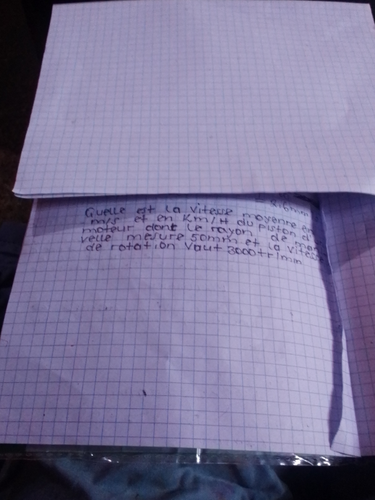 = 8,6mm
Quelle est la vitesse moyenne en
m/s et en Km/H du piston d
moteur dont le rayon de ma
velle mesure 50mm et la vitess
de rotation vaut 3000tr/min